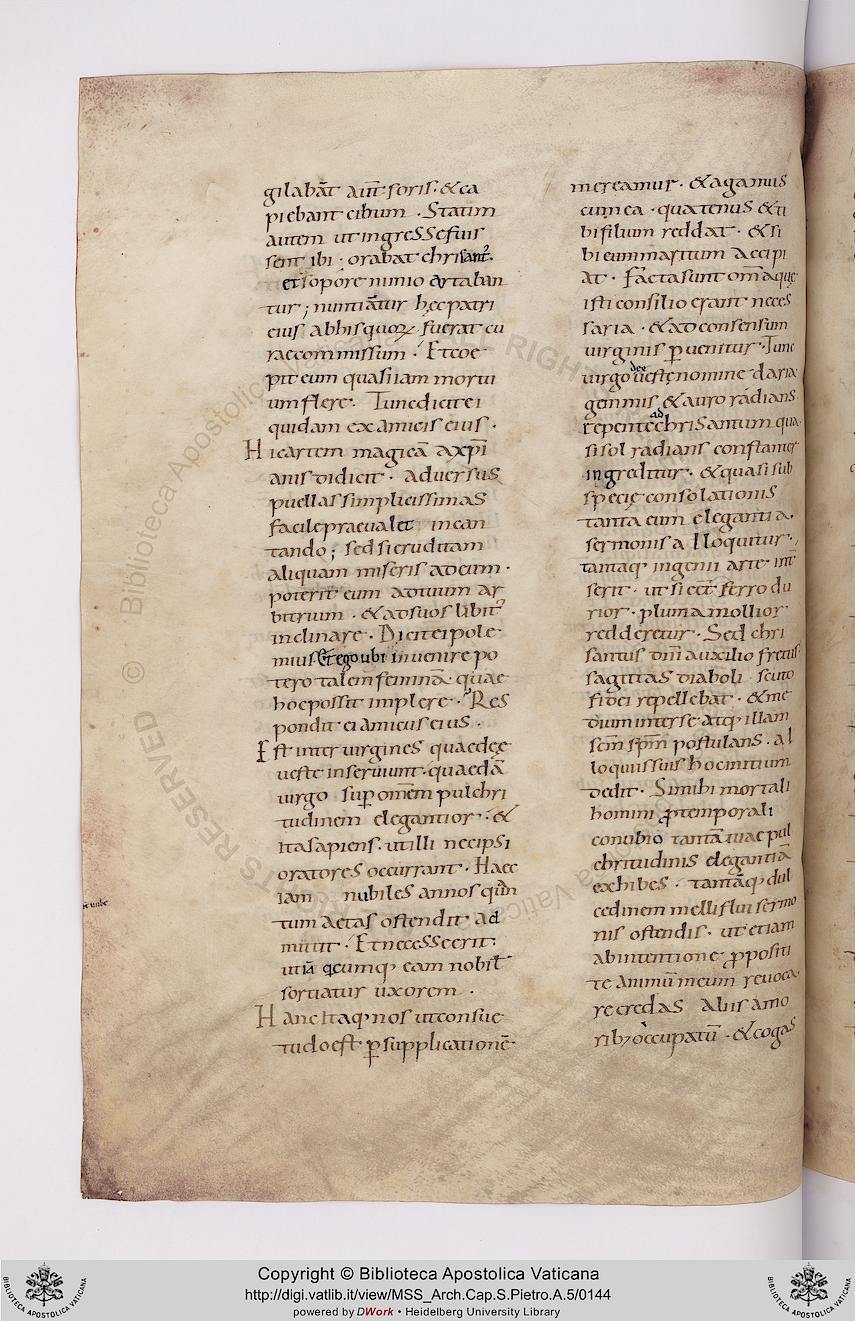 gilabāt aut̄ foris. & ca
piebant cibum. Statim
autem ut ingressefuis
sent ibi; orabat chrisant᷒.
et sopore nimio artaban
tur; nuntiātur hęc patri
eius abhis quoꝝ fuerat cu
rae commissum. Et coe
pit eum quasi iam mortui
um flere. Tunc dicit ei
quidam ex amicis eius.
Hic artem magicā a xp̄i
anis didicit. adversus
puellas simplicissimas
facile praevalet incan
tando; sed si eruditam
aliquam miseris ad eum.
poterit eum ad tuum ar
bitrium. & ad suos libit᷒
inclinare. Dicit ei pole
mius Et ego ubi invenire po
tero talem feminā quae
hoc possit implere. Res
pondit ei amicus eius.
Est inter virgines quae deę
vestę inserviunt. quaedā
virgo sup omēm pulchri
tudinem elegantior. &
ita sapiens. ut illi nec ipsi
oratores occurrant. Haec
iam nubiles annos quan
tum aetas ostendit ad
mittit. Et necesse erit.
ut iā qcumq; eam nobil̄
sortiatur uxorem.
Hanc itaq; nos ut consue
tudo est p supplicationē
mereamur. & agamus
cum ea. quatenus & ti
bi filium reddat. & si
bi eum maritum accipi
at. Facta sunt om̄a quę
isti consilio erant neces
saria. & ad consensum
virginis p venitur. Tunc
virgo deę vestę nomine daria
gemmis & auro radians
repente ad chrisantum qua
si sol radians constanter
ingreditur. & quasi sub
specię consolationis
tanta eum elegantia
sermonis alloquitur.
tamaq; ingenii arte int̄
serit. ut si eēt ferro du
rior. pluma mollior
redderetur. Sed chri
santus dn̄i auxilio fretus
sagittas diaboli scuto
fidei repellebat. & me
dium inter se atq; illam
sc̄m sp̄m postulans. al
loquiis suis hoc initium
dedit. Si mihi mortali
homini ꝓ temporali
conubio tantā tuae pul
chritudinis elegantiā
exhibes. tamāq; dul
cedinem melliflui sermo
nis ostendis. ut etiam
ab intentione ꝓpositi
te animū meum revoca
re credas aliis amo
rib; occupatū. & cogas